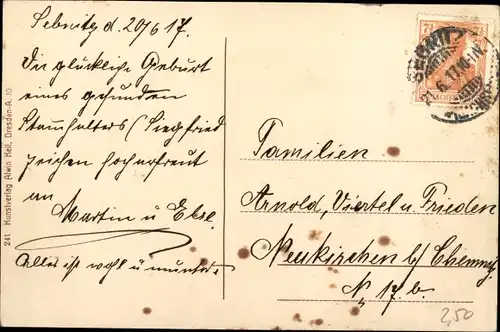 Sebnitz d. 20/6 17.
Die glückliche Geburt
eines gesunden
Stammhalters (Siegfried
zeichen hocherfreut
an
Martin u Else.
Alles ist wohl u munter.
241 Kunstverlag Alwin Keil, Dresden-A. 10
SEBNITZ
21.6.17.10-11V.
Familien
Arnold, Viertel u. Frieden
Neukirchen b/ Chemnitz
Nr 17. b.
2,50